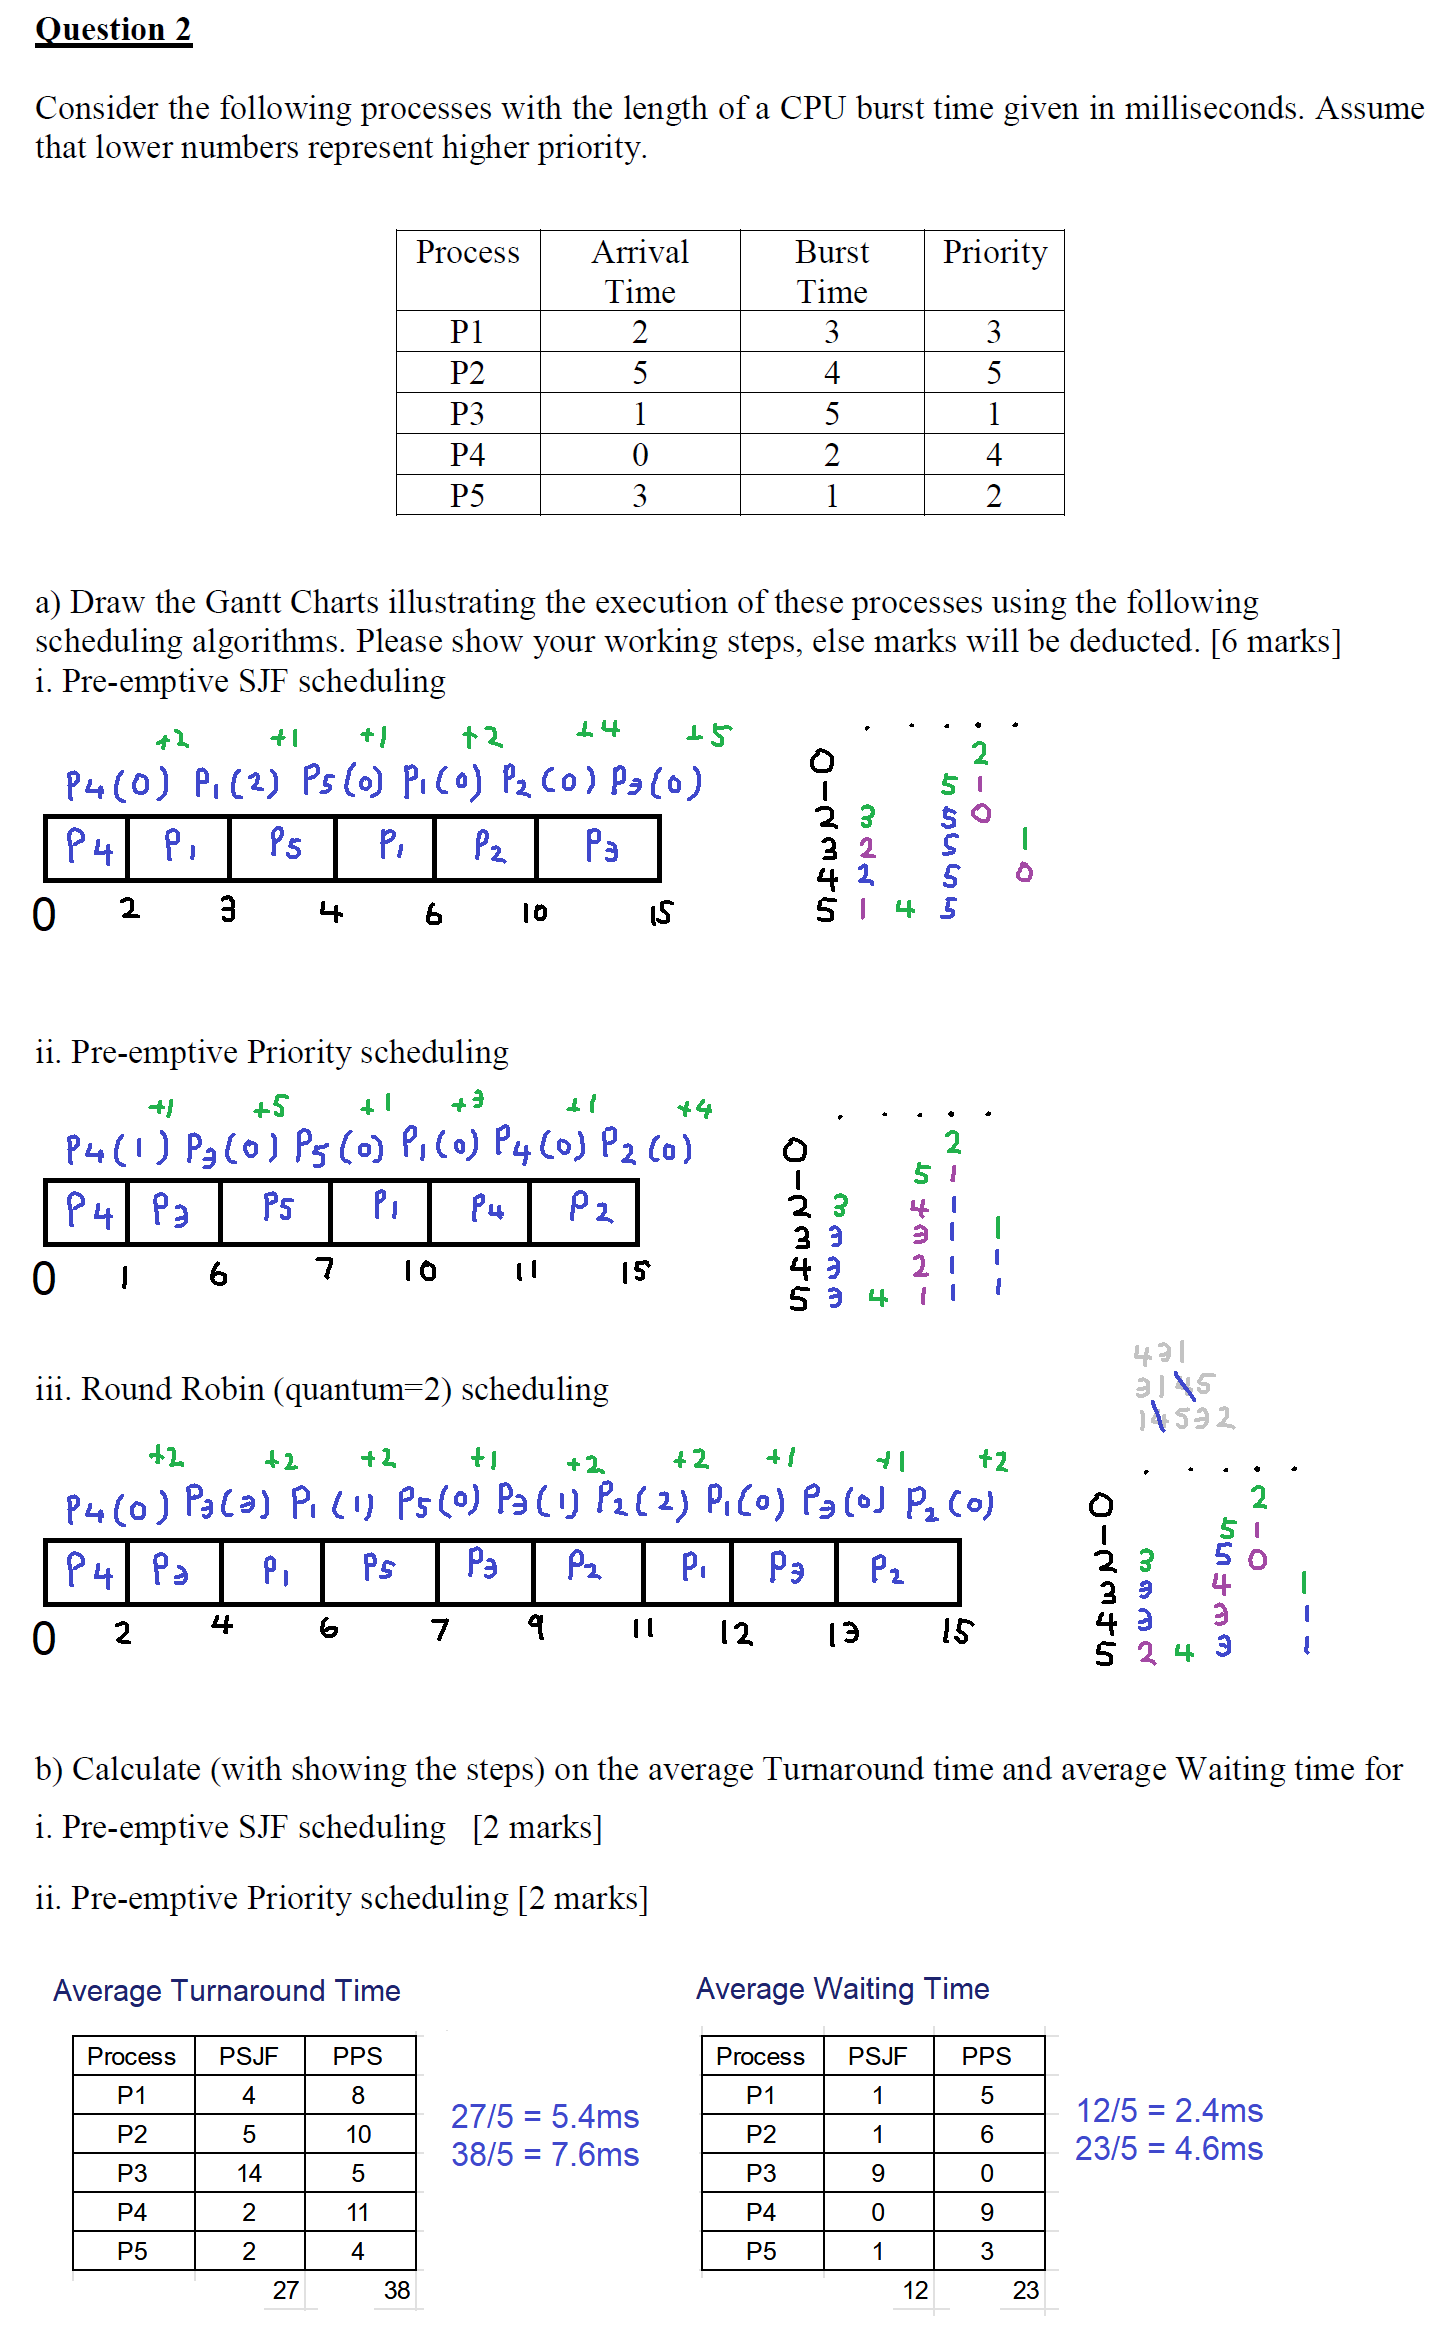 Question 2
Consider the following processes with the length of a CPU burst time given in milliseconds. Assume
that lower numbers represent higher priority.
Process Arrival Time Burst Time Priority
P1 2 3 3
P2 5 4 5
P3 1 5 1
P4 0 2 4
P5 3 1 2
a) Draw the Gantt Charts illustrating the execution of these processes using the following
scheduling algorithms. Please show your working steps, else marks will be deducted. [6 marks]
i. Pre-emptive SJF scheduling
+2 +1 +1 +2 +4 +5
P4(0) P1(2) P5(0) P1(0) P2(0) P3(0)
P4 P1 P5 P1 P2 P3
0 2 3 4 6 10 15
. . . . .
0 2
1 5 1
2 3 5 0
3 2 5 1
4 2 5 0
5 1 4 5
ii. Pre-emptive Priority scheduling
+1 +5 +1 +3 +1 +4
P4(1) P3(0) P5(0) P1(0) P4(0) P2(0)
P4 P3 P5 P1 P4 P2
0 1 6 7 10 11 15
. . . . .
0 2
1 5 1
2 3 4 1
3 3 3 1 1
4 3 2 1 1
5 3 4 1 1 1
iii. Round Robin (quantum=2) scheduling
431
3145
14532
+2 +2 +2 +1 +2 +2 +1 +1 +2
P4(0) P3(3) P1(1) P5(0) P3(1) P2(2) P1(0) P3(0) P2(0)
P4 P3 P1 P5 P3 P2 P1 P3 P2
0 2 4 6 7 9 11 12 13 15
. . . . .
0 2
1 5 1
2 3 5 0
3 3 4 1
4 3 3 1
5 2 4 3 1
b) Calculate (with showing the steps) on the average Turnaround time and average Waiting time for
i. Pre-emptive SJF scheduling [2 marks]
ii. Pre-emptive Priority scheduling [2 marks]
Average Turnaround Time
Process PSJF PPS
P1 4 8
P2 5 10
P3 14 5
P4 2 11
P5 2 4
27 38
27/5 = 5.4ms
38/5 = 7.6ms
Average Waiting Time
Process PSJF PPS
P1 1 5
P2 1 6
P3 9 0
P4 0 9
P5 1 3
12 23
12/5 = 2.4ms
23/5 = 4.6ms